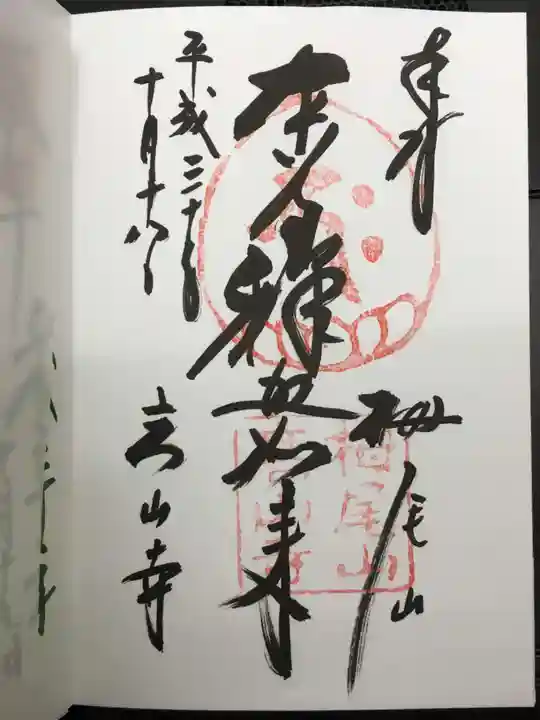 奉拝
栂尾山
釋迦如来
平成三十年
十月十八日
高山寺
栂尾山
高山寺